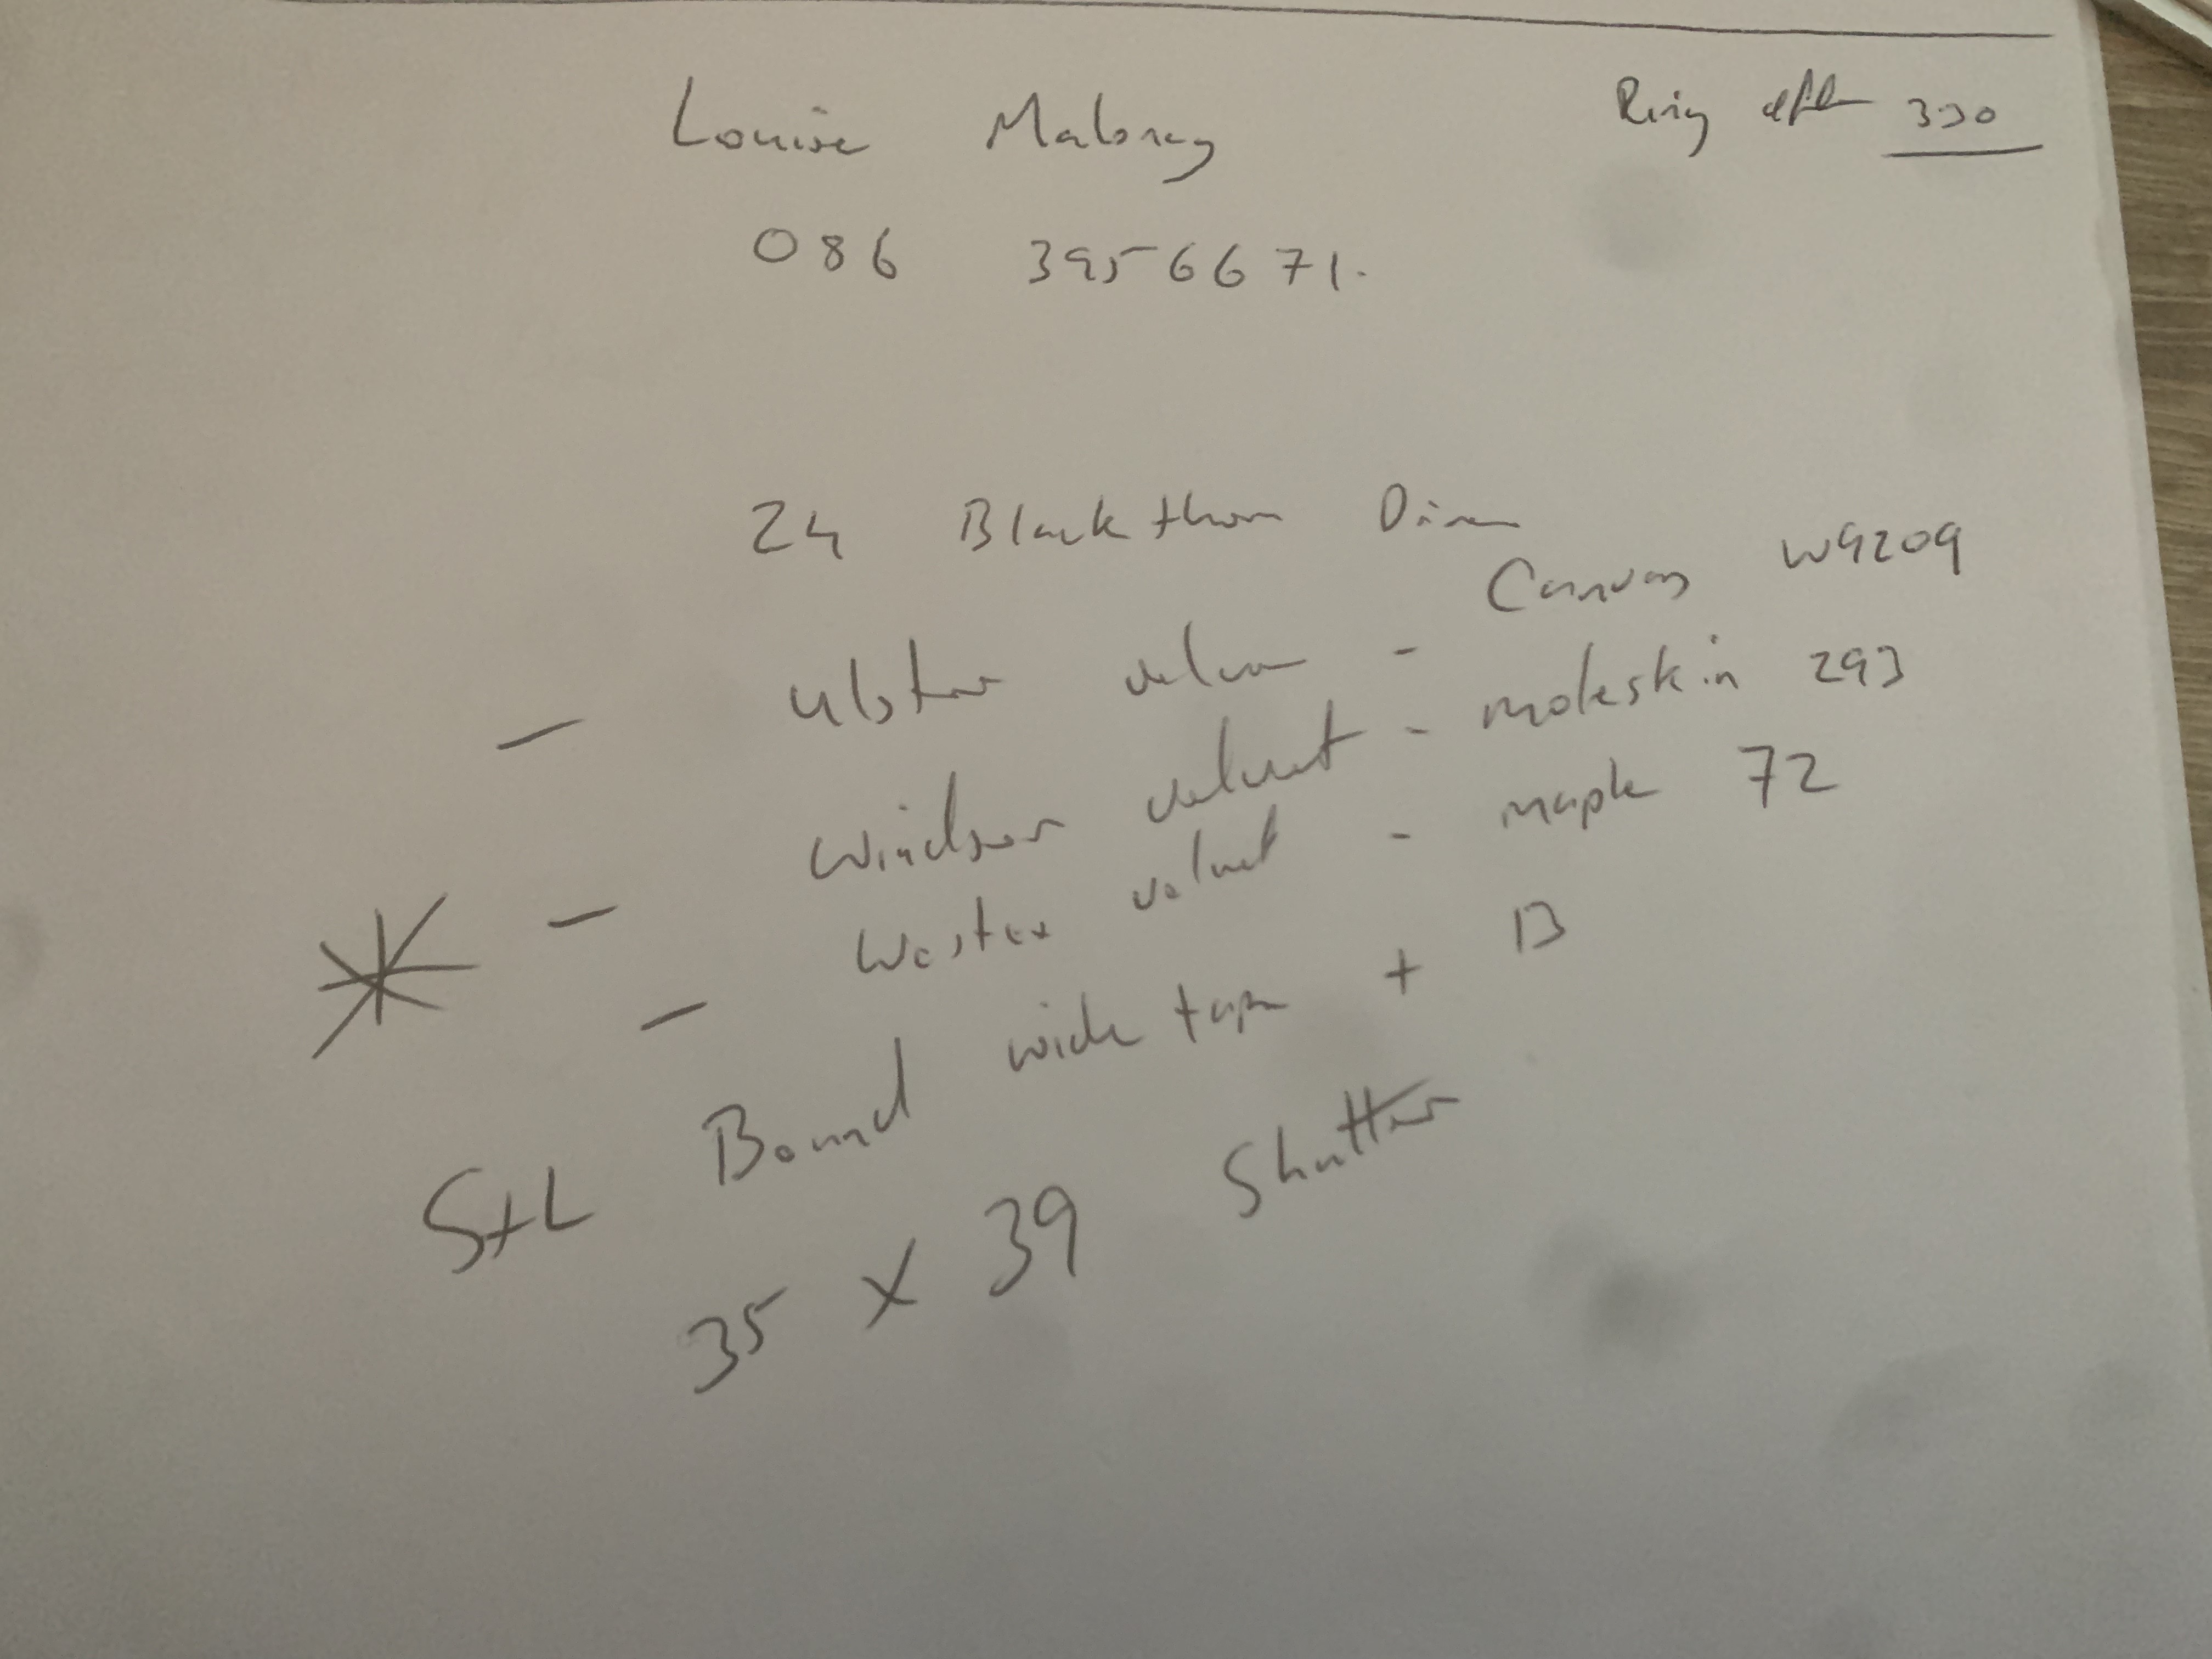 Louise Maloney
Ring after 330
086 3956671.
24 Blackthorn Drive
- Ulster velvet - Canvas W9209
- Windsor velvet - moleskin 293
- Wostex velvet - maple 72
S+L Bound wide tape + B
35 x 39 Shutter